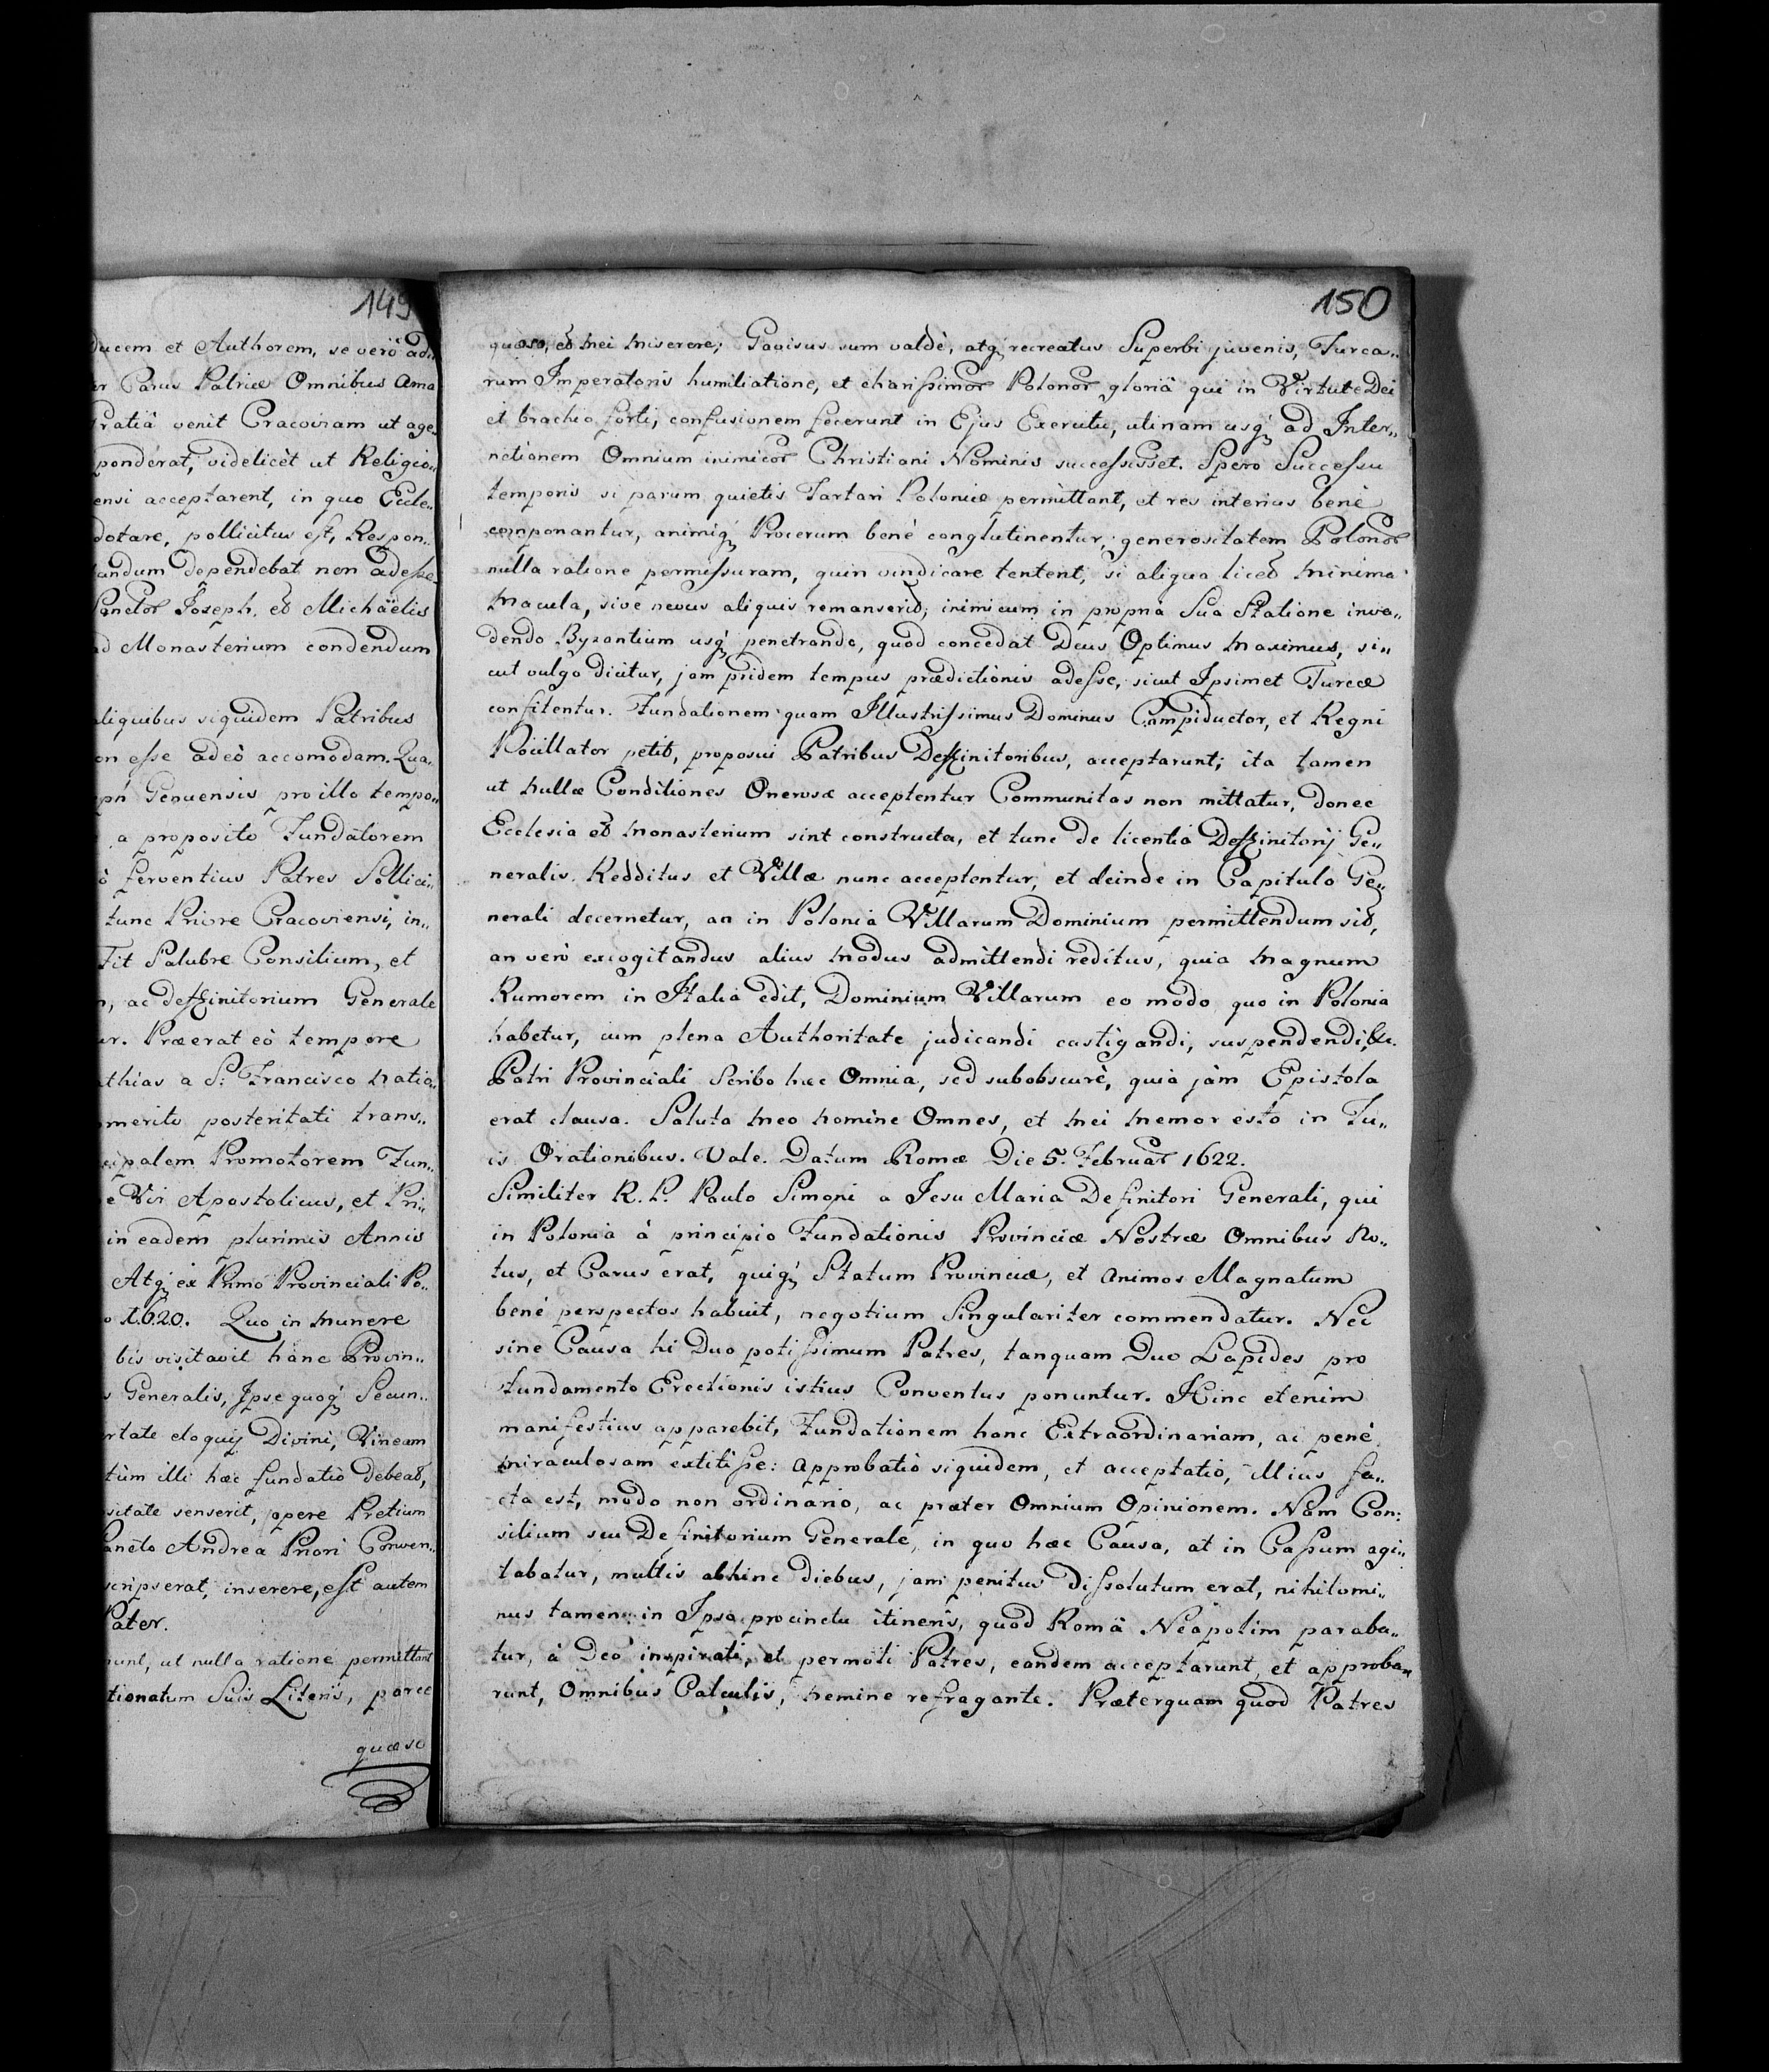 149
ducem et Authorem, se verò ad„
er Carus Patriæ Omnibus ama
Gratiâ venit Cracoviam ut age„
ponderat, videlicèt ut Religio„
ensi acceptarent, in quo Eccle„
dotare, pollicitus est, Respon„
andum dependebat non adesse
Sanctoꝝ Joseph. et Michäelis
ad Monasterium condendum
aliquibus siquidem Patribus
on esse adeò accomodam. Qua„
ph Genuensis pro illo tempo„
a proposito Fundatorem
ò ferventius Patres Sollici„
tunc Priore Cracoviensi, in„
Fit Salubre Consilium, et
, ac deffinitorium Generale
ur. Præerat eò tempore
athias a S: Francisco natio„
merito posteritati trans„
cipalem Promotorem Fun„
e Vir Apostolicus, et Pri„
in eadem plurimis Annis
Atqꝫ ex Primo Provinciali Po„
o 1620. Quo in munere
bis visitavit hanc Provin„
s Generalis, Ipse quoqꝫ Secun„
rtate eloquij Divini, Vineam
tùm illi hæc fundatio debeat,
sitate senserit, opere Pretium
Sancto Andrea Priori Conven„
scripserat, inserere, est autem
Pater.
unt, ut nulla ratione permittant
tionatum Suis Literis, parce
quæso
150
quæso, et mei miserere; Gavisus sum valdè, atqꝫ recreatus Superbi juvenis, Turca„
rum Imperatoris humiliatione, et charissimoꝝ Polonoꝝ gloriâ qui in Virtute Dei
et brachio forti, confusionem fecerunt in Ejus Exercitu, utinam usqꝫ ad Inter„
nctionem Omnium inimicoꝝ Christiani Nominis successisset. Spero Successu
temporis si parum quietis Tartari Poloniæ permittant, et res interius benè
componantur, animiqꝫ Procerum benè conglutinentur, generositatem Polonoꝝ
nulla ratione permissuram, quin vindicare tentent, si aliqua licet minima
macula, sive nevus aliquis remanserit, inimicum in propria Sua Statione inva„
dendo Byzantium usqꝫ penetrando, quod concedat Deus Optimus Maximus, si„
cut vulgo dicitur, jam pridem tempus prædictionis adesse, sicut Ipsimet Turcæ
confitentur. Fundationem quam Illustrissimus Dominus Campiductor, et Regni
Pocillator petit, proposui Patribus Deffinitoribus, acceptarunt; ita tamen
ut nullæ Conditiones Onerosæ acceptentur Communitas non mittatur, donec
Ecclesia et Monasterium sint constructa, et tunc de licentia Deffinitorij Ge„
neralis. Redditus et Villæ nunc acceptentur, et deinde in Capitulo Ge„
nerali decernetur, an in Polonia Villarum Dominium permittendum sit,
an verò excogitandus alius modus admittendi reditus, quia magnum
Rumorem in Italia edit, Dominium Villarum eo modo quo in Polonia
habetur, cum plena Authoritate judicandi castigandi, suspendendi, &c.
Patri Provinciali Scribo hæc Omnia, sed subobscurè, quia jàm Epistola
erat clausa. Saluta meo nomine Omnes, et mei memor esto in Tu„
is Orationibus. Vale. Datum Romæ Die 5. Februaꝝ 1622.
Similiter R. P. Paulo Simoni a Jesu Maria Definitori Generali, qui
in Polonia à principio Fundationis Provinciæ Nostræ Omnibus No„
tus, et Carus erat, quiqꝫ Statum Provinciæ, et animos Magnatum
benè perspectos habuit, negotium Singulariter commendatur. Nec
sine Causa hi Duo potissimum Patres, tanquam Duo Lapides pro
fundamento Erectionis istius Conventus ponuntur. Hinc etenim
manifestius apparebit, Fundationem hanc Extraordinariam, ac penè
miraculosam extitisse: approbatio siquidem, et acceptatio, illius fa„
cta est, modo non ordinario, ac præter Omnium Opinionem. Nam Con„
silium seu Definitorium Generale, in quo hæc Causa, at in Cassum agi„
tabatur, multis abhinc diebus, jam penitus dissolutum erat, nihilomi„
nus tamen in Ipso procinctu itineris, quod Româ Neapolim paraba„
tur, à Deo inspirati, et permoti Patres, eandem acceptarunt, et approba„
runt, Omnibus Calculis, nemine refragante. Præterquam quod Patres